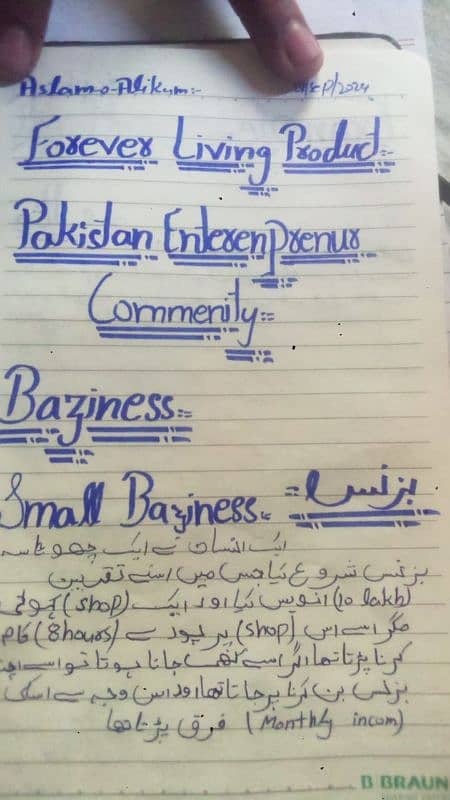 Aslam-o-Alikum:-
/2024
Forever Living Product:-
Pakistan Enterenprenur
Commenity:-
Baziness:-
Small Baziness:- بزنس:-
ایک انسان نے ایک چھوٹا سہ
بزنس شروع کیا جس میں اسنے تقریبن
(10 lakh) انویس کیا اور ایک (shop) کھولی
مگر اسے اس (shop) پر یود سے (8 hours) کام
کرنا پڑتا تھا اگر اسے کہی جانا ہوتا تو اسے اپنا
بزنس بن کرنا پرجاتا تھا اور اس وجہ سے اسکی
(Monthly incom) فرق پڑتا تھا
B BRAUN